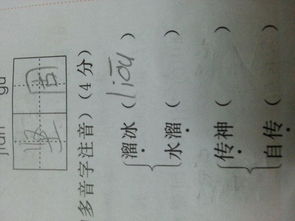 jiān gù
坚固
多音字注音)(4分)
溜冰(liōu)
水溜(
传神(
自传(